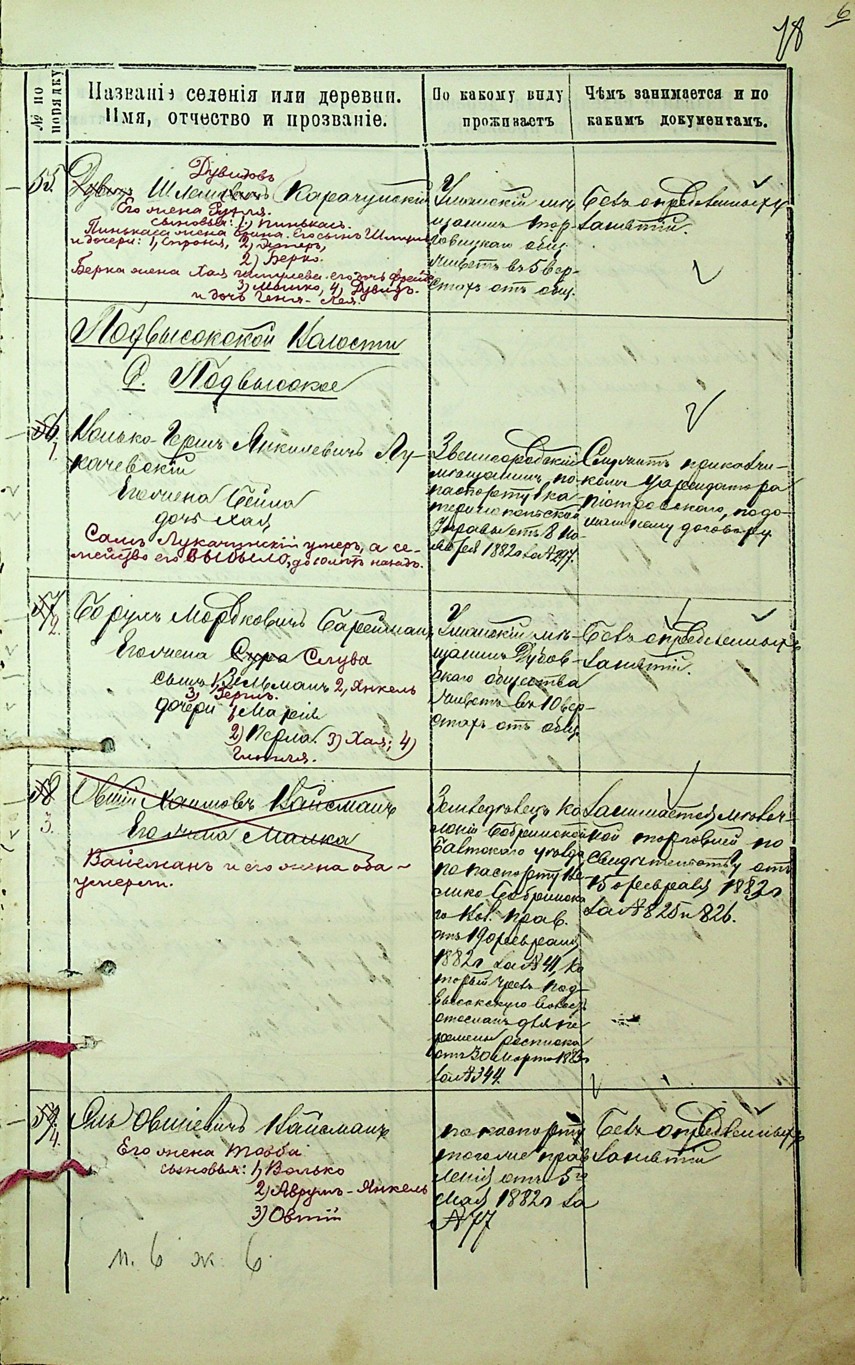 18 6
№ по порядку
Названіе селенія или деревни.
Имя, отчество и прозваніе.
По какому виду
проживаетъ
Чѣмъ занимается и по
какимъ документамъ.
55.
Дувидъ
Шлемовичъ Карачунскій
Его жена Рухля.
сыновья: 1) Пинькасъ.
и дочери: 1) Строня, 2) Эстеръ,
2) Берко.
Берка жена Хая
3) Мошко, 4) Дувидъ.
и дочь Геня-Лея.
Уманскій мѣ-
щанинъ Тор-
говицкаго общ.
Живетъ въ 5 вер-
стахъ отъ общ.
Безъ опредѣленныхъ
занятій.
Подвысокской Волости
С. Подвысокое
56
1.
Волько-Гершъ Янкилевичъ Лу-
качевскій
Его жена Бейла
дочь Хая
Самъ Лукачевскій умеръ, а се-
мейство его выбыло,
Звенигородскій
мѣщанинъ, по
паспорту Ека-
теринопольской
Управы отъ 8 Но-
ября 1882 г. за № 297.
Служитъ приказчи-
комъ у арендатора
Піотровскаго, по до-
машнему договору
57
2.
Борухъ Мордковичъ
Его жена Сура Слува
сынъ 1) Зельманъ 2) Янкель
3) Гершъ.
дочери 1) Маріи
2) Перла. 3) Хая; 4)
Уманскій мѣ-
щанинъ Дубов-
скаго общества
Живетъ въ 10 вер-
стахъ отъ общ.
Безъ опредѣленныхъ
занятій.
58
3.
Овшій Хаимовъ Вайсманъ
Его жена Малка
Вайсманъ и его жена оба-
умерли.
Земледѣлецъ Ко-
лоніи Бобринской
Балтскаго уѣзда
по паспорту
Кол. прав.
отъ 19 февраля
1882 г. за № 41, ко-
торый чрезъ Под-
высокское волост.
отосланъ для пе-
ремѣны росписка
отъ 30 марта 1883 г.
за № 344.
Занимается мелоч-
ной торговлей по
свидѣтельству отъ
15 февраля 1882 г.
за № 825 и 826.
59
4.
Овшіевичъ Вайсманъ
Его жена Товба
сыновья: 1) Волько
2) Аврумъ-Янкель
3) Овшій
по паспорту
того же прав-
ленія отъ 5го
Мая 1882 г. за
№ 77
Безъ опредѣленныхъ
занятій
м. 6 ж. 6